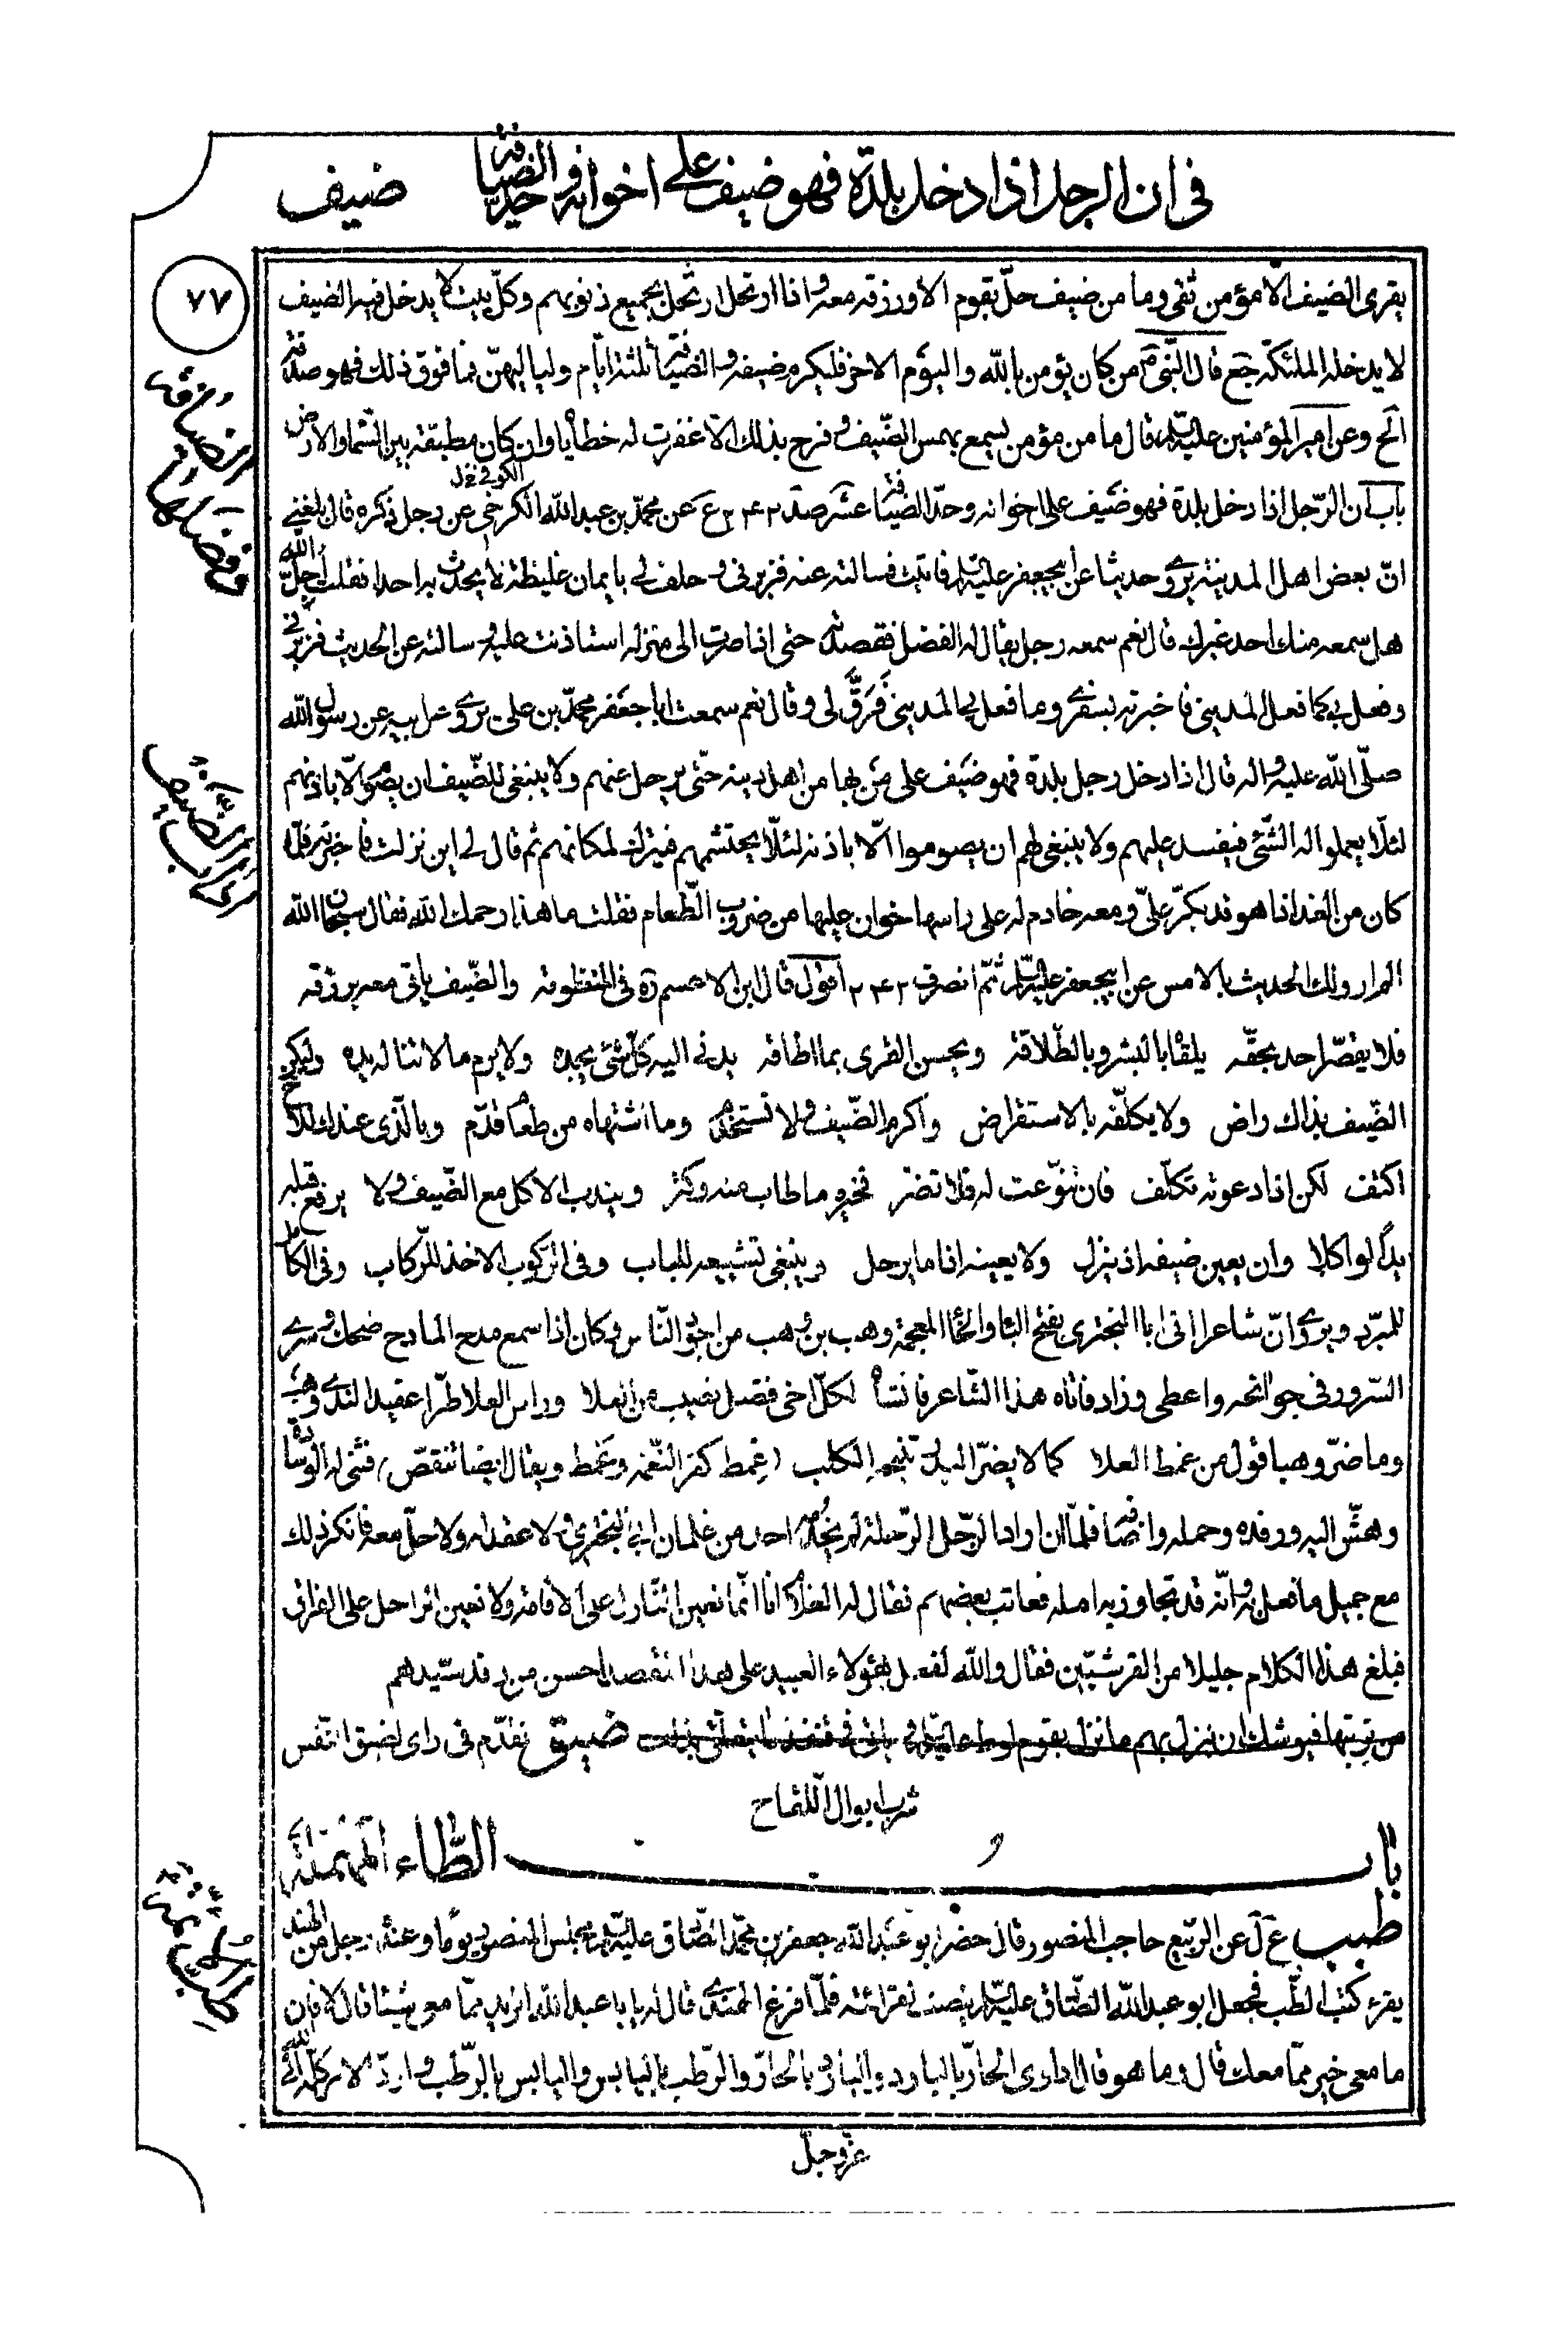 في ان الرجل اذا دخل بلدة فهو ضيف على اخوانه وحد الضيافة ضيف
٧٧
يقرى الضيف الا مؤمن تقي وما من ضيف حلّ بقوم الا ورزقه معه واذا ارتحل ارتحل بجميع ذنوبهم وكلّ بيت لا يدخل فيه الضيف
لا يدخله الملئكة جع قال النبي ص من كان يؤمن بالله واليوم الاخر فليكرم ضيفه والضيافة ثلثة ايّام ولياليهنّ فما فوق ذلك فهو صدقة
الخ وعن امير المؤمنين عليه السلام قال ما من مؤمن يسمع بهمس الضّيف وفرح بذلك الا غفرت له خطاياه وان كان مطبقة بين السّماء والارض
باب ان الرّجل اذا دخل بلدة فهو ضيف على اخوانه وحدّ الضيافة عشر صد ٢٤٢ ع عن محمّد بن عبد الله الكرخي عن رجل ذكره قال بلغني
الكوفي خ ل
انّ بعض اهل المدينة يروي حديثا عن ابي جعفر عليه السلام فاتيت فسالته عنه فزبرني وحلف لي بايمان غليظة لا يحدث به احدا فقلت اجل الله
هل سمعه منك احد غيرك قال نعم سمعه رجل يقال له الفضل فقصدته حتى اذا صرت الى منزله استاذنت عليه وسالته عن الحديث فزبرني
وفعل بي كما فعل المديني فاخبرته بسفري وما فعل بي المديني فَرَقَّ لي وقال نعم سمعت ابا جعفر محمّد بن علي يروي عن ابيه عن رسول الله
صلّى الله عليه واله قال اذا دخل رجل بلدة فهو ضيف على من بها من اهل دينه حتّى يرحل عنهم ولا ينبغي للضّيف ان يصوم الّا باذنهم
لئلّا يعملوا له الشّئ فيفسد عليهم ولا ينبغي لهم ان يصوموا الّا باذنه لئلّا يحتشمهم فيترك لمكانهم ثم قال لي اين نزلت فاخبرته فلمّا
كان من الغد اذا هو قد بكّر عليّ ومعه خادم له على راسها خوان عليها من ضروب الطّعام فقلت ما هذا رحمك الله فقال سبحان الله
الم ارو لك الحديث بالامس عن ابي جعفر عليه السلام ثمّ انصرف ٢٤٢ اقول قال ابن الاعسم ره في المنظومة والضّيف ياتي معه برزقه
فلا يقصّر احد بحقّه يلقاه بالبشر وبالطّلاقة ويحسن القرى بما اطاقه يدني اليه كلّ شئ يجده ولا يرم ما لا تناله يده وليكن
الضّيف بذاك راض ولا يكلّفه بالاستقراض واكرم الضّيف ولا تستخدم وما اشتهاه من طعام قدّم وبالّذي عندك للاخ
اكتف لكن اذا دعوته تكلّف فان تنوّعت له فلا تضر فخيره ما طاب منه وكثر ويندب الاكل مع الضّيف ولا يرفع قبله
يدا لو اكلا وان يعين ضيفه اذ ينزل ولا يعينه اذا ما يرحل وينبغي تشييعه للباب وفي الرّكوب الاخذ للرّكاب وفي الكامل
للمبرّد ويروي انّ شاعرا اتى ابا البختري بفتح الباء والخاء المعجمة وهب بن وهب من اجود النّاس وكان اذا سمع مدح المادح ضحك وسرى
السّرور في جوانحه واعطى وزاد فاتاه هذا الشّاعر فانشاه لكلّ اخي فضل نصيب من العلا وراس العلا طرّا عقيد الندى وهب
وما ضرّ وهبا قول من غمط العلا كما لا يضرّ البدر تنبحه الكلب (غمط كفر النّعمة وغمط ويقال ايضا تنقص) فثنى له الوسادة
وهشّ اليه ورفده وحمله واضافه فلمّا ان اراد الرّجل الرّحلة لم يخدمه احد من غلمان ابي البختري ولا عقد له ولا حلّ معه فانكر ذلك
مع جميل ما فعل به وانّه قد تجاوز به امله فعاتب بعضهم فقال له الغلام انا انّما نعين النّازل على الاقامة ولا نعين الراحل على الفراق
فبلغ هذا الكلام جليلا من القرشيّين فقال والله لفعل هؤلاء العبيد على هذا القصد احسن من رفد سيّدهم
من تربتها فيوشك ان ينزل بهم ما نزل بقوم لوط عليه السلام و ياتي في قنفذ ما يتعلّق بذلك ضيق تقدّم في راى لضيق النّفس
شرب ابوال اللقاح
باب الطّاء المهملة
طبب ع ل عن الرّبيع حاجب المنصور قال حضر ابو عبد الله جعفر بن محمّد الصّادق عليه السلام مجلس المنصور يوما وعنده رجل من الهند
يقرء كتب الطّب فجعل ابو عبد الله الصّادق عليه السلام ينصت لقرائته فلمّا فرغ الهندي قال له يا با عبد الله اتريد ممّا معي شيئا قال لا فان
ما معي خير ممّا معك قال وما هو قال اداوي الحارّ بالبارد والبارد بالحارّ والرّطب باليابس واليابس بالرّطب واردّ الامر كلّه الى الله
عزّ وجلّ